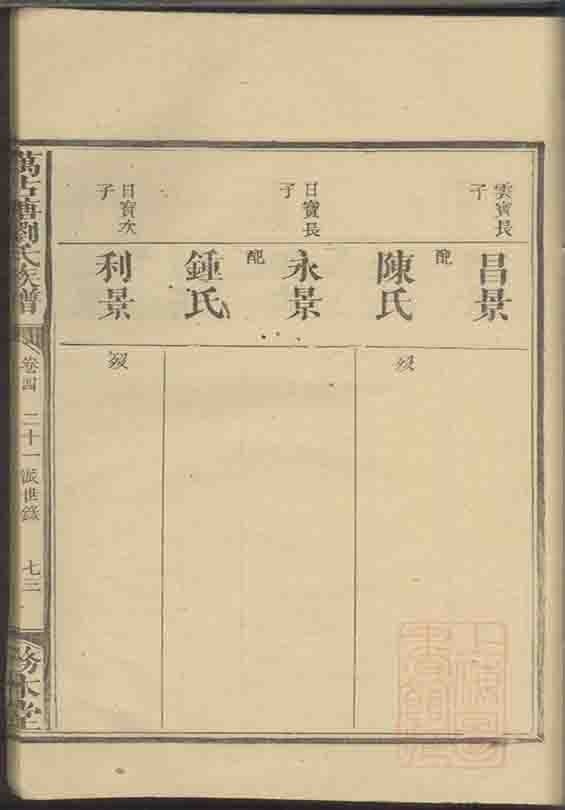 雲寶長子
昌景
配
陳氏
歿
日寶長子
永景
配
鍾氏
日寶次子
利景
歿
萬古塘劉氏族譜
卷四
二十一派世錄
七三
務本堂